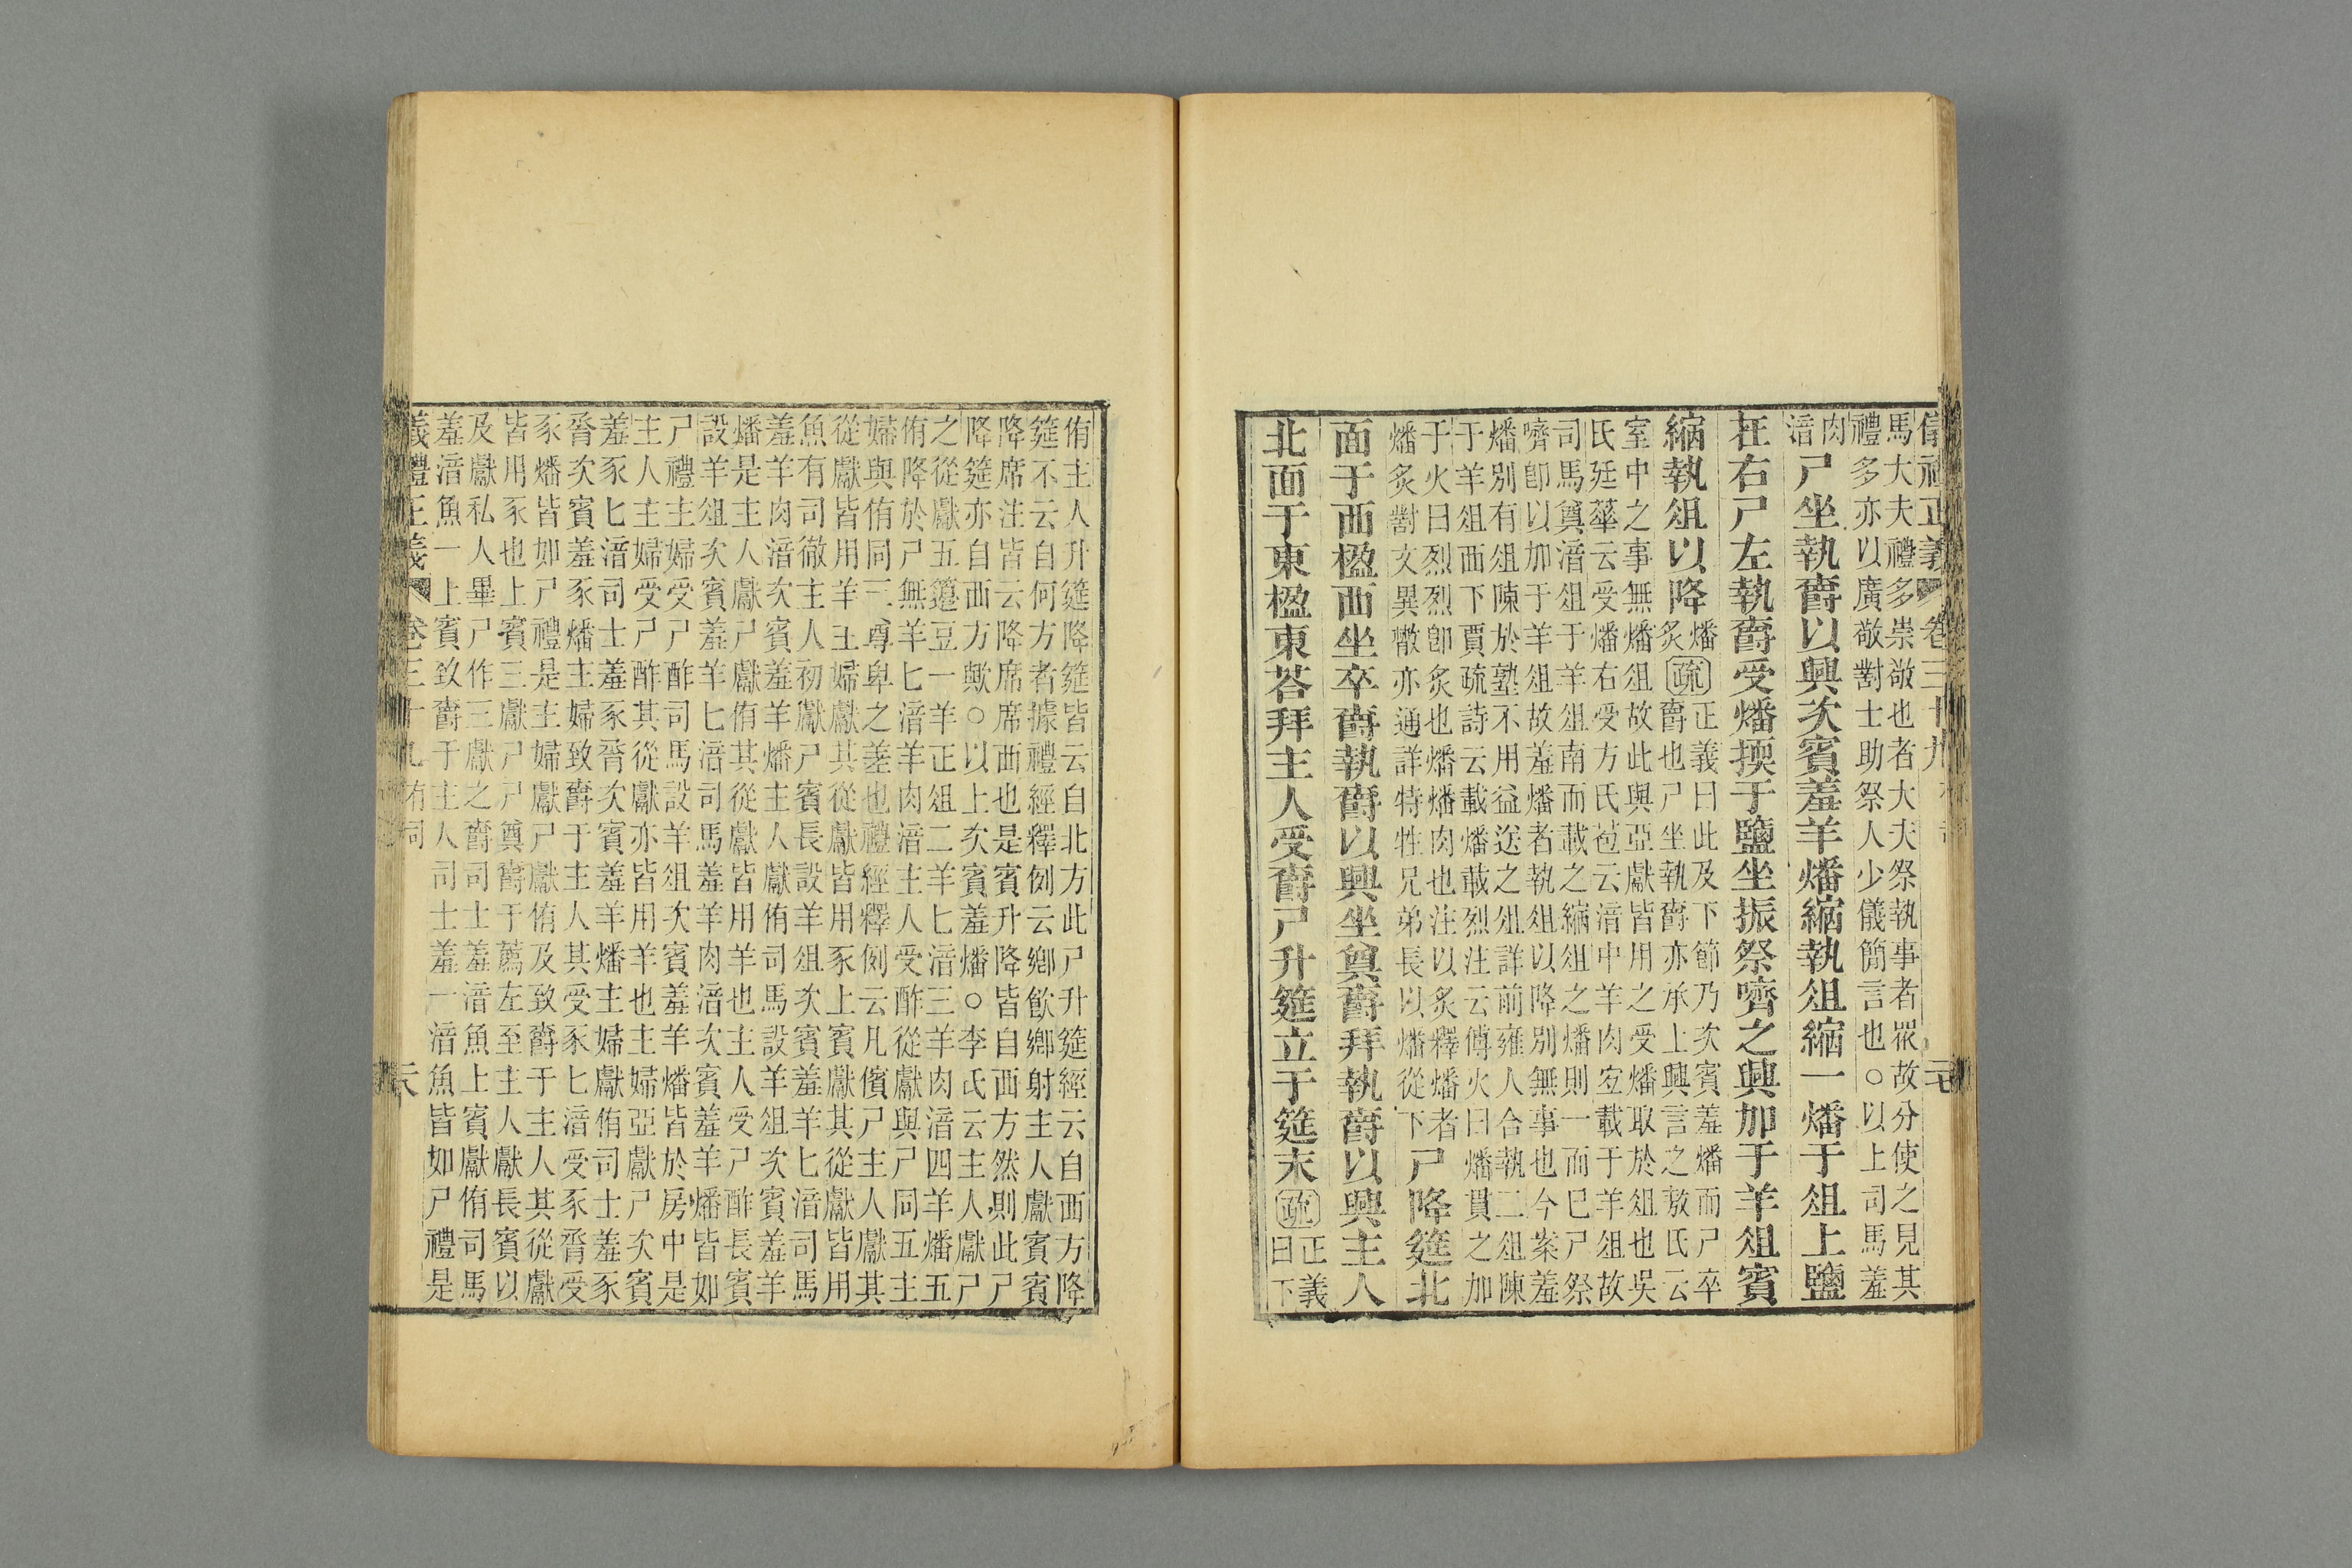 馬大夫禮多崇敬也者大夫祭執事者眾故分使之見其
禮多亦以廣敬對士助祭人少儀簡言也○以上司馬羞
肉
湇
尸坐執爵以興次賓羞羊燔縮執俎縮一燔于俎上鹽
在右尸左執爵受燔擩于鹽坐振祭嚌之興加于羊俎賓
縮執俎以降
燔
炙
疏
正義曰此及下節乃次賓羞燔而尸卒
爵也尸坐執爵亦承上興言之敖氏云
室中之事無燔俎故此與亞獻皆用之受燔取於俎也吳
氏廷華云受燔右受方氏苞云湇中羊肉空載于羊俎故
司馬奠湇俎于羊俎南而載之縮俎之燔則一而已尸祭
嚌卽以加于羊俎故羞燔者執俎以降別無事也今案羞
燔別有俎陳於塾不用益送之俎詳前雍人合執二俎陳
于羊俎西下賈疏詩云載燔載烈注云傅火曰燔貫之加
于火曰烈烈卽炙也燔燔肉也注以炙釋燔者
燔炙對文異散亦通詳特牲兄弟長以燔從下
尸降筵北
面于西楹西坐卒爵執爵以興坐奠爵拜執爵以興主人
北面于東楹東荅拜主人受爵尸升筵立于筵末
疏
正義
曰下
侑主人升筵降筵皆云自北方此尸升筵經云自西方降
筵不云自何方者據禮經釋例云鄉飮鄉射主人獻賓賓
降席注皆云降席席西也是賓升降皆自西方然則此尸
降筵亦自西方歟○以上次賓羞燔○李氏云主人獻尸
之從獻五籩豆一羊正俎二羊匕湇三羊肉湇四羊燔五
侑降於尸無羊匕湇羊肉湇主人受酢從獻與尸同五主
婦與侑同三尊卑之差也禮經釋例云凡儐尸主人獻其
從獻皆用羊主婦獻其從獻皆用豕上賓獻其從獻皆用
魚有司徹主人初獻尸賓長設羊俎次賓羞羊匕湇司馬
羞羊肉湇次賓羞羊燔主人獻侑司馬設羊俎次賓羞羊
燔是主人獻尸獻侑其從獻皆用羊也主人受尸酢長賓
設羊俎次賓羞羊匕湇司馬羞羊肉湇次賓羞羊燔皆如
尸禮主婦受尸酢司馬設羊俎次賓羞羊燔皆於房中是
主人主婦受尸酢其從獻亦皆用羊也主婦亞獻尸次賓
羞豕匕湇司士羞豕脀次賓羞羊燔主婦獻侑司士羞豕
脀次賓羞豕燔主婦致爵于主人其受豕匕湇受豕脀受
豕燔皆如尸禮是主婦獻尸獻侑及致爵于主人其從獻
皆用豕也上賓三獻尸尸奠爵于薦左至主人獻長賓以
及獻私人畢尸作三獻之爵司士羞湇魚上賓獻侑司馬
羞湇魚一上賓致爵于主人司士羞一湇魚皆如尸禮是